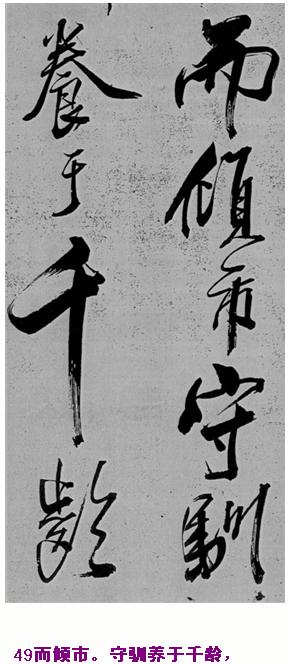 而傾市守馴
養于千齡
49而倾市。守驯养于千龄，